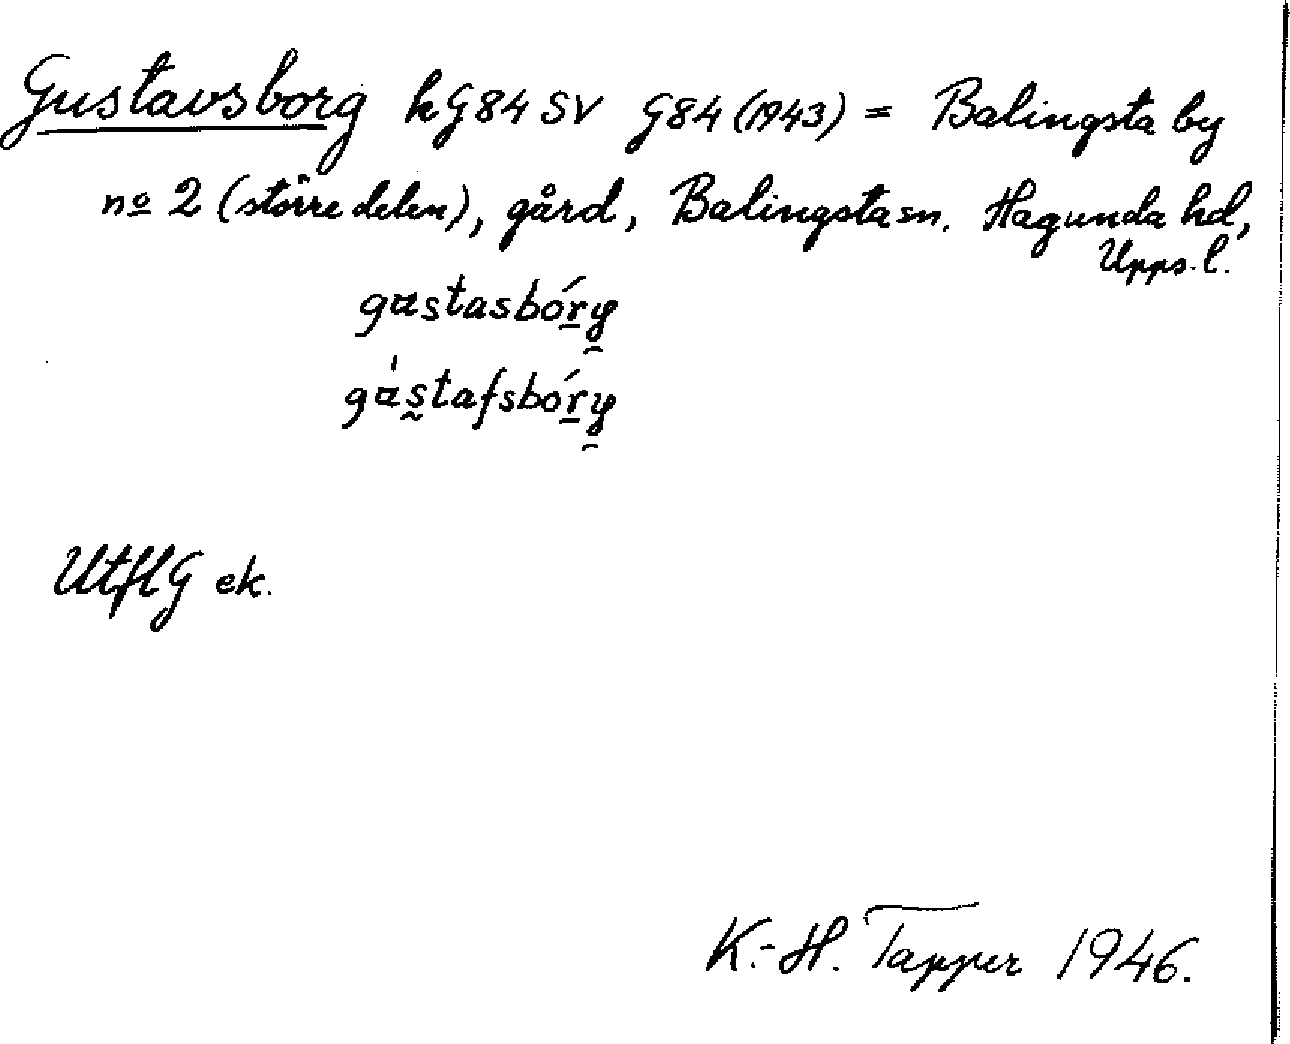 Gustavsborg kG84 SV G84 (1943) = Balingsta by
no 2 (större delen), gård, Balingsta sn. Hagunda hd,
Upps. l.
gɯstasbórg
gɯ́stafsbórg
UtflG ek.
K.-H. Tapper 1946.